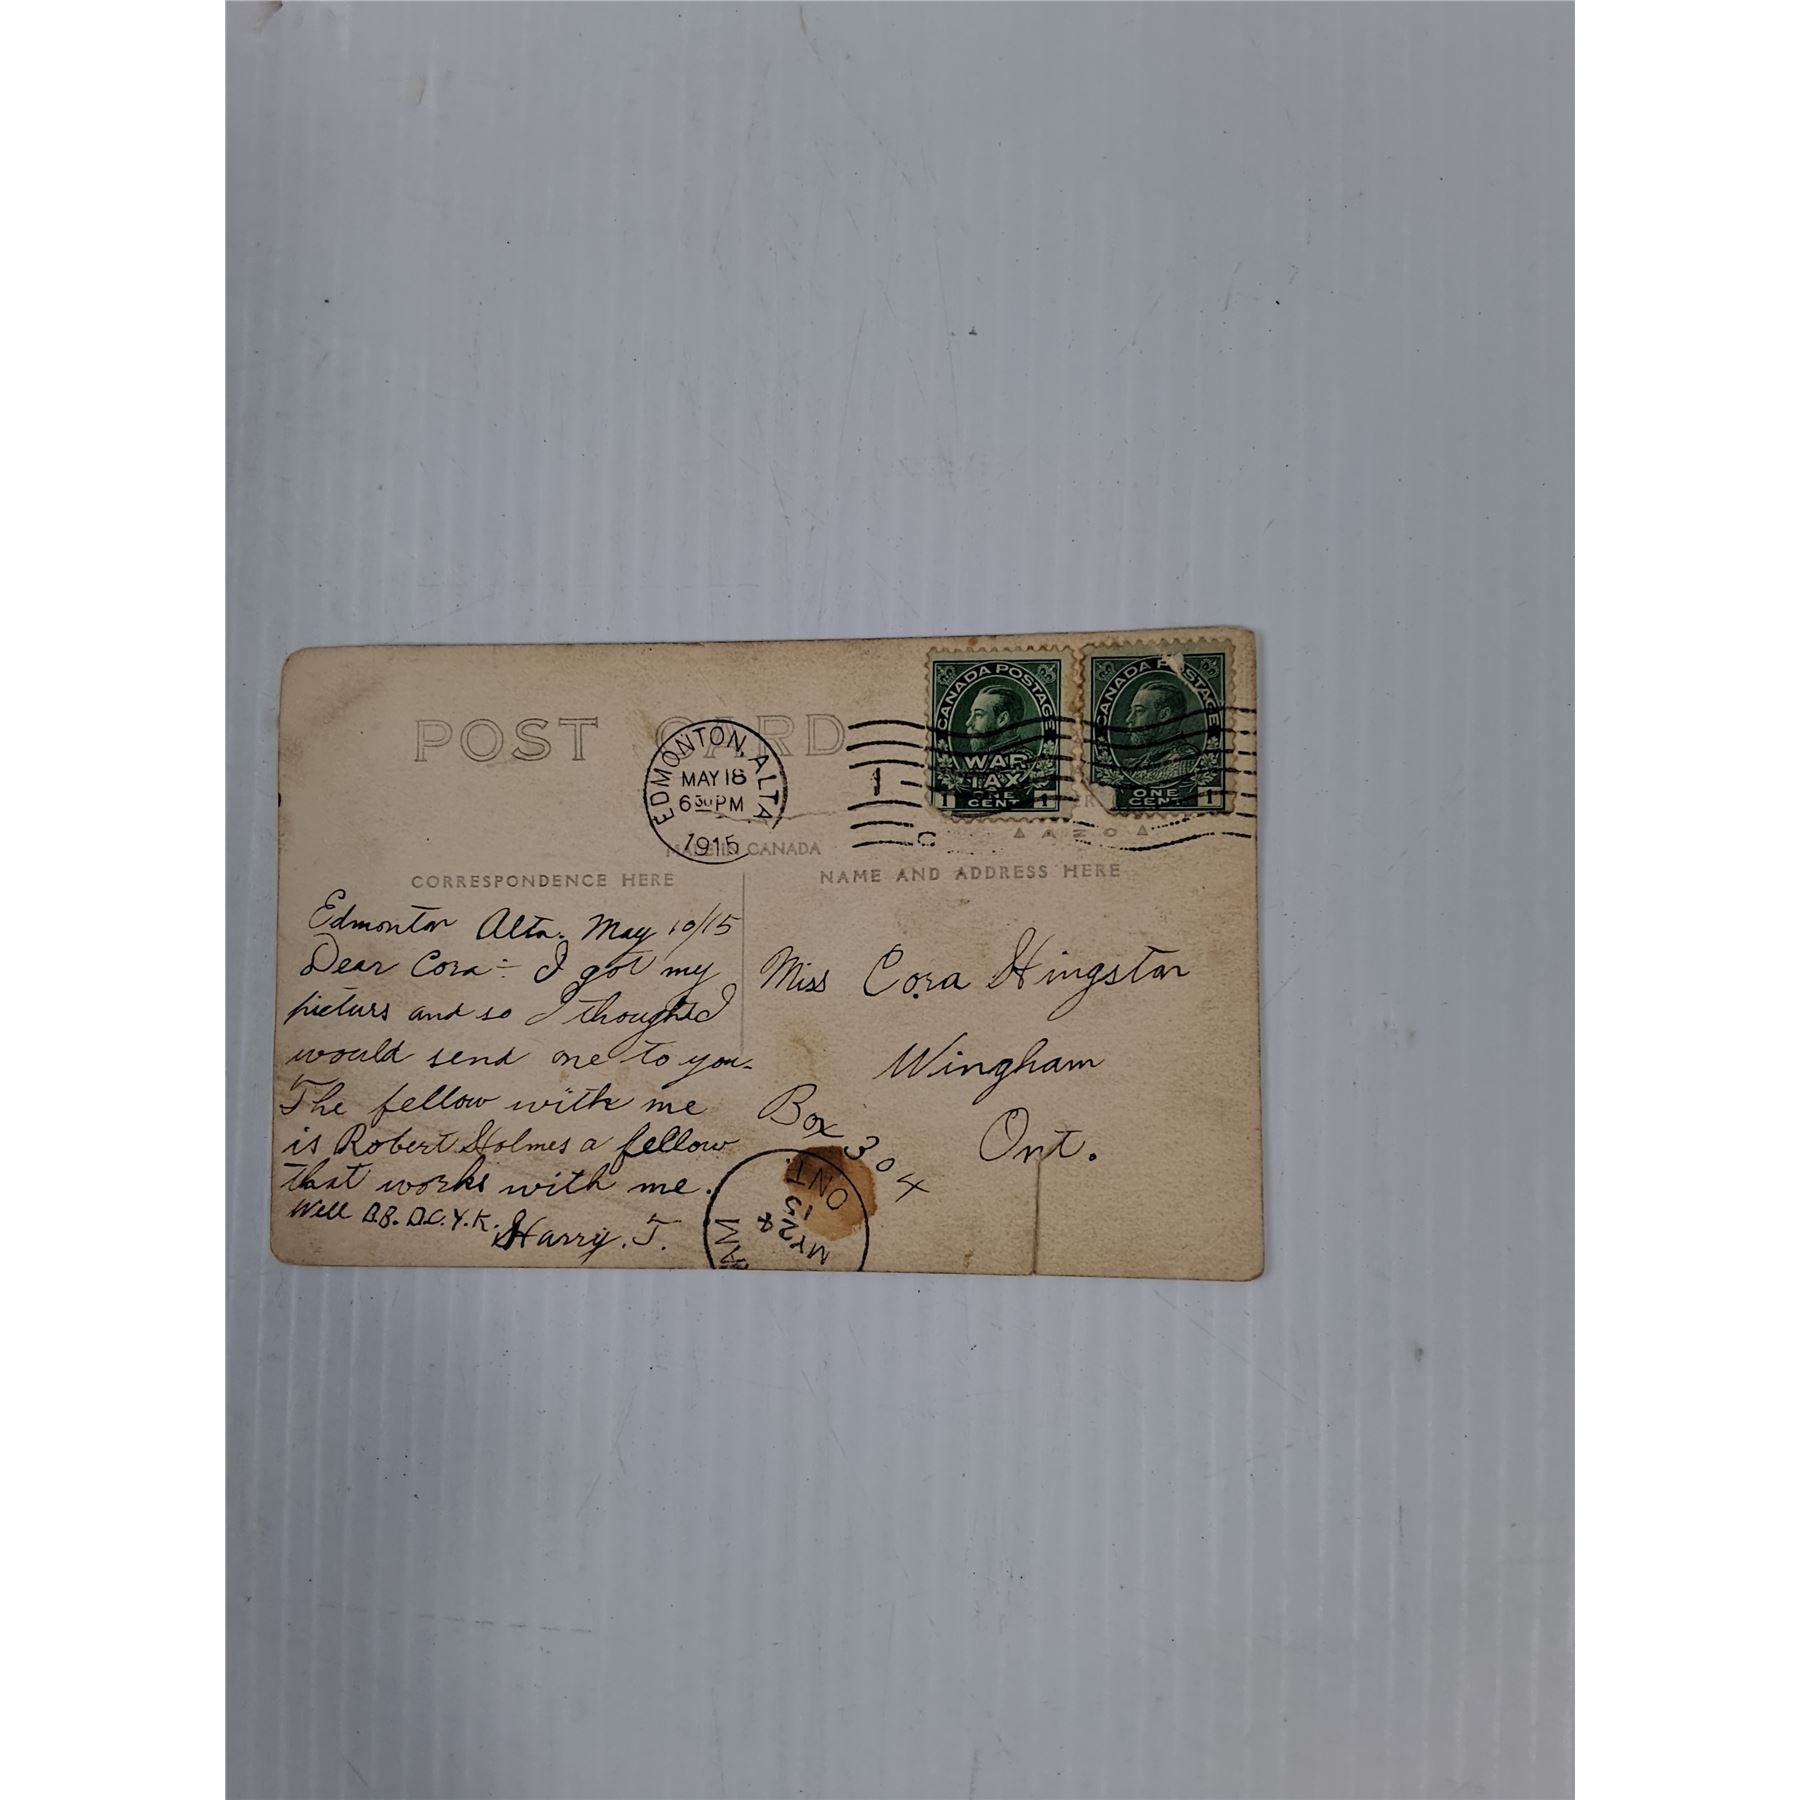 POST CARD
EDMONTON, ALTA
MAY 18
6 30 PM
1915
1
CANADA POSTAGE
WAR
TAX
1 ONE CENT 1
CANADA POSTAGE
ONE
CENT 1
AZO
MADE IN CANADA
CORRESPONDENCE HERE
NAME AND ADDRESS HERE
Edmonton Alta. May 10/15
Dear Cora:- I got my
picturs and so I thought I
would send one to you.
The fellow with me
is Robert Holmes a fellow
that works with me.
Well B.B. D.C.Y.K. Harry. T.
Miss Cora Hingston
Wingham
Box 304
Ont.
ONT.
MY 24
15